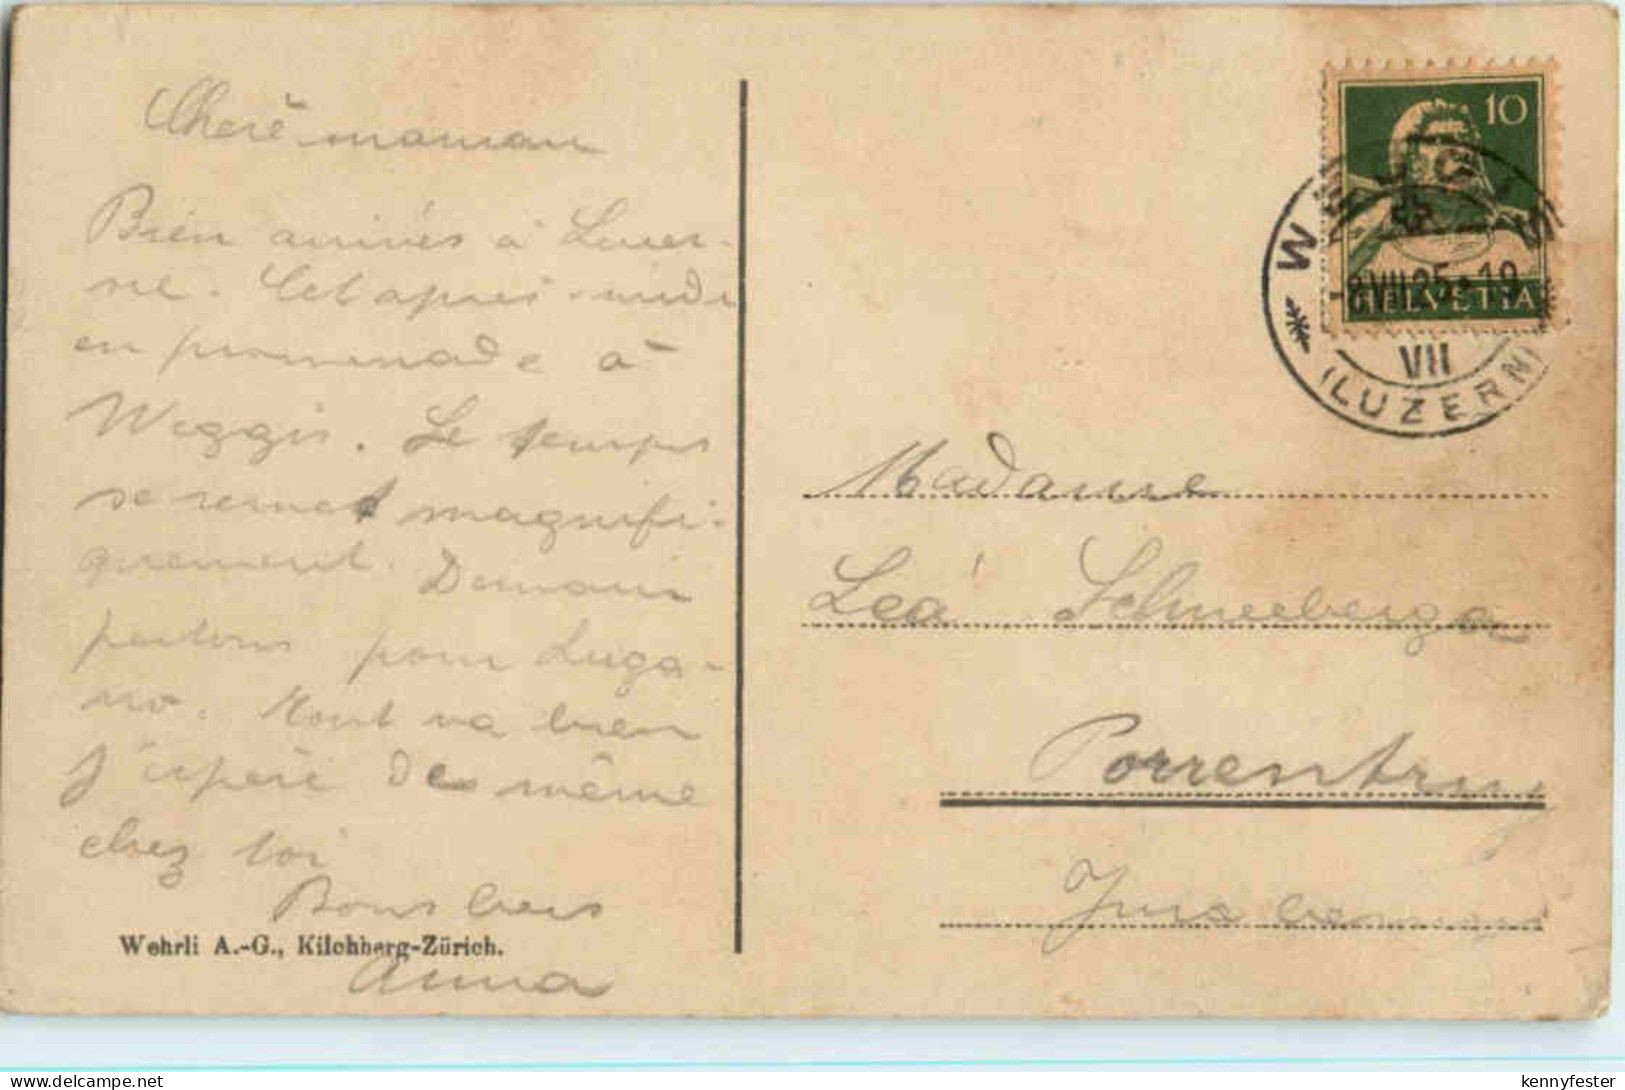 Cherè maman
Bien arrivés à Lucer-
ne. Cet après-midi
en promenade à
Weggis. Le temps
se remet magnifi-
quement. Demain
partons pour Luga-
no. Tout va bien
j'espère de même
chez toi
Bons
Wehrli A.-G., Kilchberg-Zürich.
Anna
10
HELVETIA
WEGGIS
-8.VII.25·19
VII
(LUZERN)
Madame
Léa Schneeberger
Porrentruy
Jura bernois
kennyfester